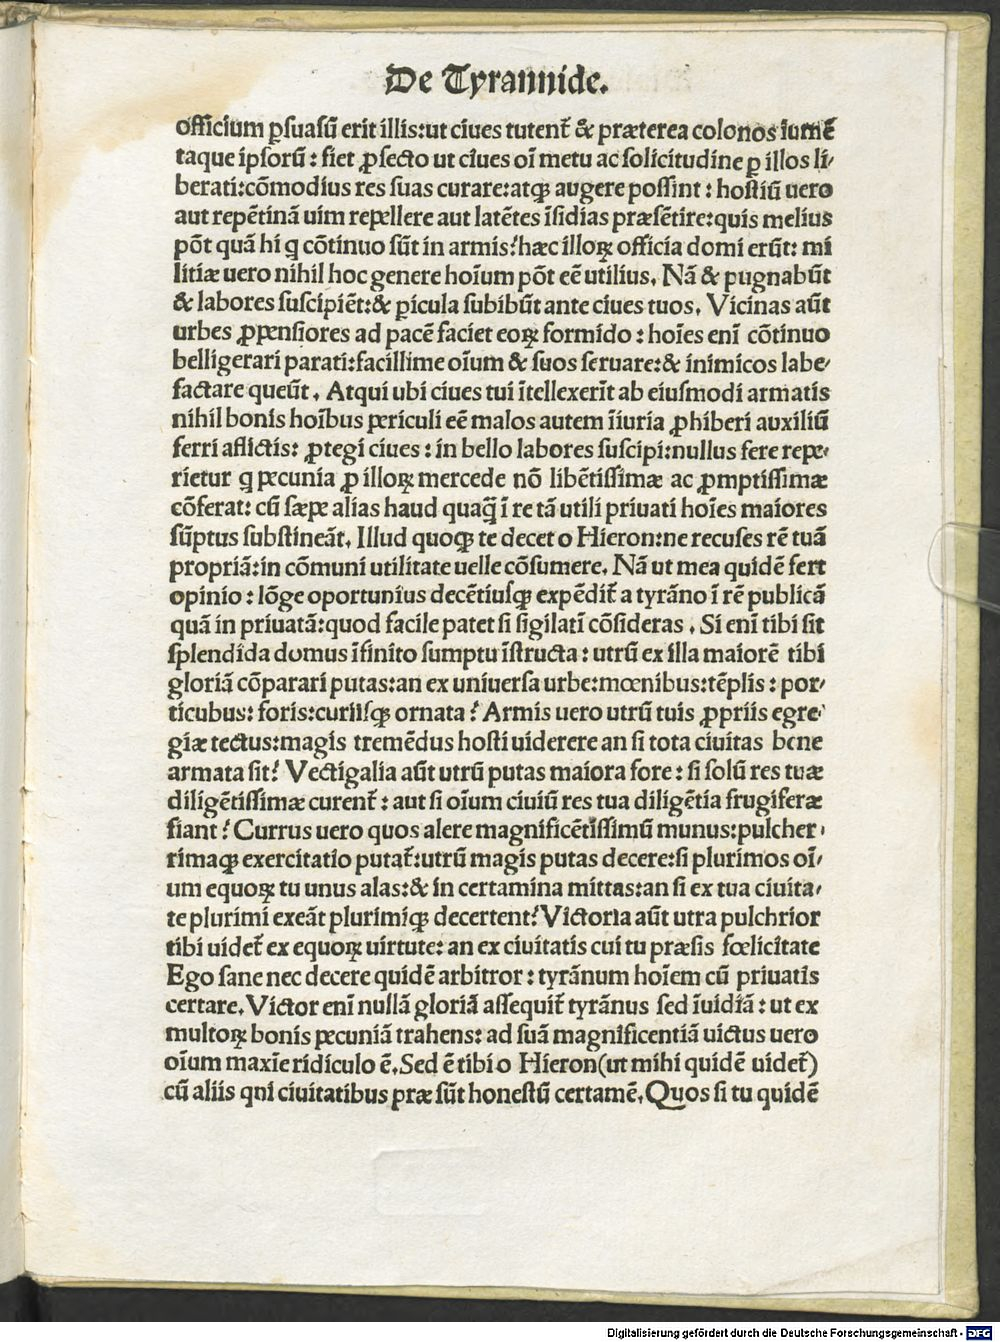 De Tyrannide.
officium ꝑſuaſū erit illis:ut ciues tutent̃ & præterea colonos iumē
taque ipſorū : fiet ꝓfecto ut ciues oī metu ac ſolicitudine ꝑ illos li⸗
berati:cōmodius res ſuas curare:atqꝫ augere poſſint : hoſtiū uero
aut repētinā uim repellere aut latētes īſidias præſētire:quis melius
pōt quā hi q̄ cōtinuo ſūt in armis?hæc illoꝝ officia domi erūt: mi
litiæ uero nihil hoc genere hoīum pōt eē utilius. Nā & pugnabūt
& labores ſuſcipiēt:& ꝑicula ſubibūt ante ciues tuos. Vicinas aūt
urbes ꝓpenſiores ad pacē faciet eoꝝ formido : hoīes enī cōtinuo
belligerari parati:facillime oīum & ſuos ſeruare:& inimicos labe⸗
factare queūt. Atqui ubi ciues tui ītellexerīt ab eiuſmodi armatis
nihil bonis hoībus periculi eē malos autem īiuria ꝓhiberi auxiliū
ferri aflictis: ꝓtegi ciues : in bello labores ſuſcipi:nullus fere repe⸗
rietur q̄ pecunia ꝓ illoꝝ mercede nō libētiſſimæ ac ꝓmptiſſimæ
cōferat: cū ſæpe alias haud quaq̄ ī re tā utili priuati hoīes maiores
ſūptus ſubſtineāt. Illud quoqꝫ te decet o Hieron:ne recuſes rē tuā
propriā:in cōmuni utilitate uelle cōſumere. Nā ut mea quidē fert
opinio : lōge oportunius decētiuſqꝫ expēdit̃ a tyrāno ī rē publicā
quā in priuatā:quod facile patet ſi ſigilatī cōſideras . Si enī tibi ſit
ſplendida domus īfinito ſumptu īſtructa : utrū ex illa maiorē tibi
gloriā cōparari putas:an ex uniuerſa urbe:mœnibus:tēplis : por⸗
ticubus: foris:curiiſqꝫ ornata ? Armis uero utrū tuis ꝓpriis egre⸗
giæ tectus:magis tremēdus hoſti uiderere an ſi tota ciuitas bene
armata ſit? Vectigalia aūt utrū putas maiora fore : ſi ſolū res tuæ
diligētiſſimæ curent̃ : aut ſi oīum ciuiū res tua diligētia frugiferæ
fiant ? Currus uero quos alere magnificētiſſimū munus:pulcher⸗
rimaqꝫ exercitatio putat̃:utrū magis putas decere:ſi plurimos oī⸗
um equoꝝ tu unus alas:& in certamina mittas:an ſi ex tua ciuita⸗
te plurimi exeāt plurimiqꝫ decertent?Victoria aūt utra pulchrior
tibi uidet̃ ex equoꝝ uirtute: an ex ciuitatis cui tu præſis fœlicitate
Ego ſane nec decere quidē arbitror : tyrānum hoīem cū priuatis
certare. Victor enī nullā gloriā aſſequit̃ tyrānus ſed īuidiā : ut ex
multoꝝ bonis pecuniā trahens: ad ſuā magnificentiā uictus uero
oīum maxīe ridiculo ē. Sed ē tibi o Hieron(ut mihi quidē uidet̃)
cū aliis qni ciuitatibus præ ſūt honeſtū certamē. Quos ſi tu quidē
Digitalisierung gefördert durch die Deutsche Forschungsgemeinschaft - DFG